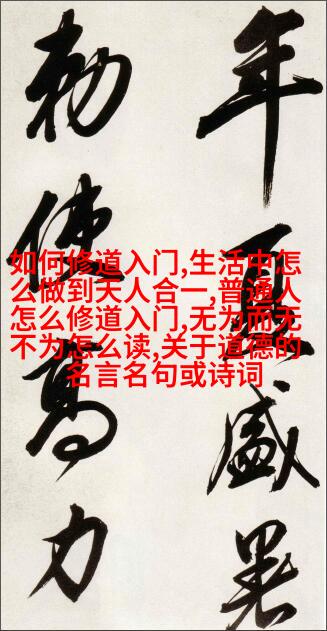 年夏盛暑
勅使高力
如何修道入门,生活中怎
么做到天人合一,普通人
怎么修道入门,无为而无
不为怎么读,关于道德的
名言名句或诗词